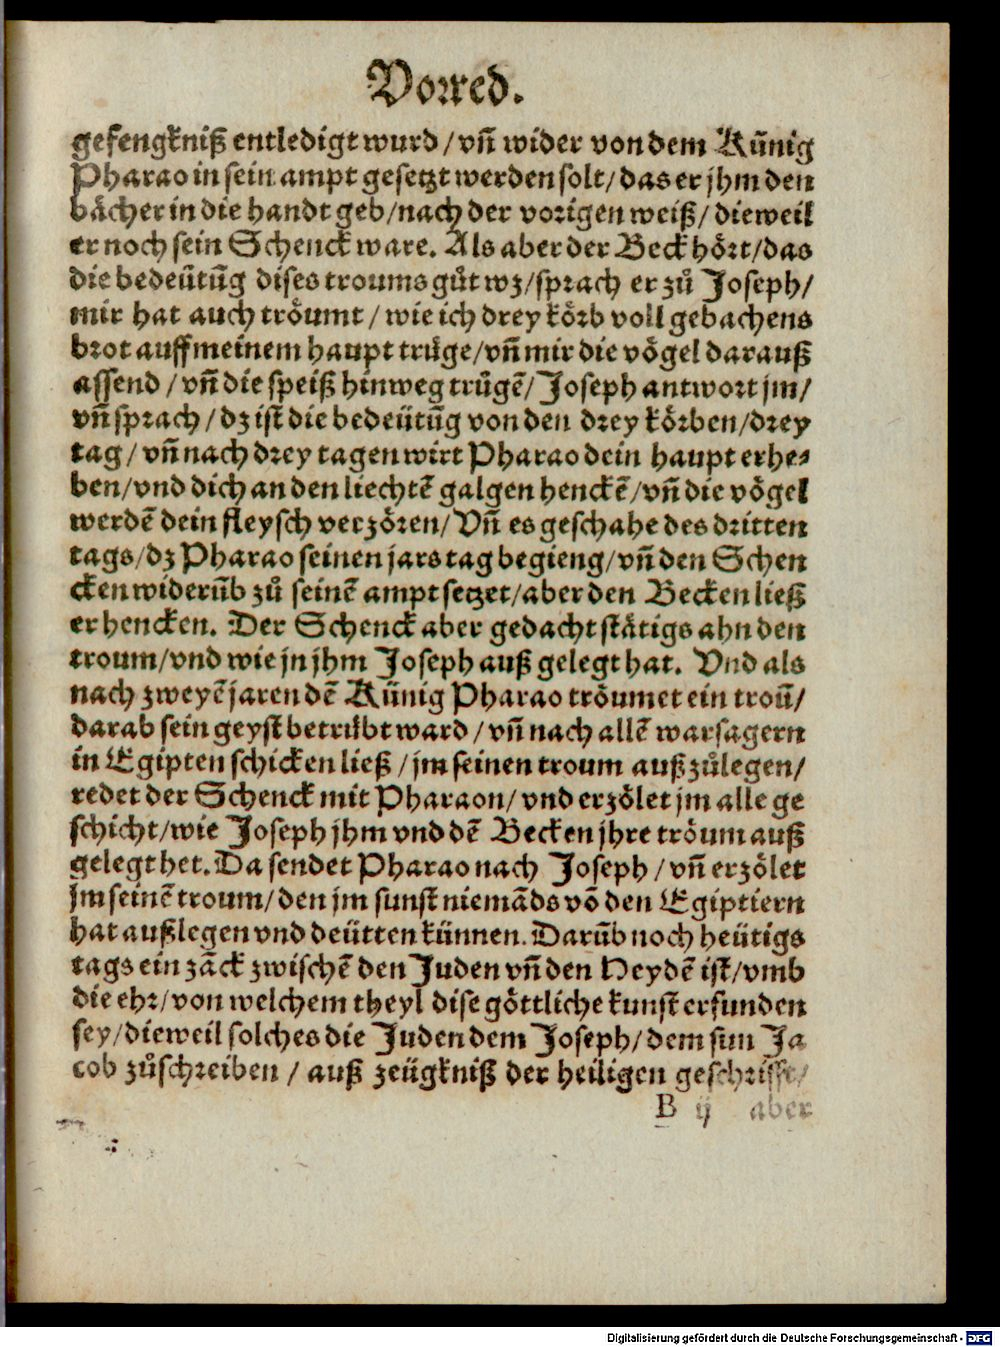 Vorred.
gefengkniß entledigt wurd / vñ wider von dem Künig
Pharao in sein ampt gesetzt werden solt / das er jhm den
bächer in die handt geb / nach der vorigen weiß / dieweil
er noch sein Schenck ware. Als aber der Beck hört / das
die bedeütūg dises troums gůt wz / sprach er zů Joseph /
mir hat auch tröumt / wie ich drey körb voll gebachens
brot auff meinem haupt trüge / vñ mir die vögel darauß
assend / vñ die speiß hinweg trůgē / Joseph antwort jm /
vñ sprach / dz ist die bedeütūg von den drey körben / drey
tag / vñ nach drey tagen wirt Pharao dein haupt erhe⸗
ben / vnd dich an den liechtē galgen henckē / vñ die vögel
werdē dein fleysch verzören / Vñ es geschahe des dritten
tags / dz Pharao seinen jarstag begieng / vñ den Schen
cken widerūb zů seinē ampt setzet / aber den Becken ließ
er hencken. Der Schenck aber gedacht stätigs ahn den
troum / vnd wie jn jhm Joseph auß gelegt hat. Vnd als
nach zweyē jaren dē Künig Pharao tröumet ein troū /
darab sein geyst betrübt ward / vñ nach allē warsagern
in Egipten schicken ließ / jm seinen troum außzůlegen /
redet der Schenck mit Pharaon / vnd erzölet jm alle ge
schicht / wie Joseph jhm vnd dē Becken jhre tröum auß
gelegt het. Da sendet Pharao nach Joseph / vñ erzölet
jm seinē troum / den jm sunst niemāds vō den Egiptiern
hat außlegen vnd deütten künnen. Darūb noch heütigs
tags ein zāck zwischē den Juden vñ den Heydē ist / vmb
die ehr / von welchem theyl dise göttliche kunst erfunden
sey / dieweil solches die Juden dem Joseph / dem sun Ja
cob zůschreiben / auß zeügkniß der heiligen geschrifft /
B ij aber
Digitalisierung gefördert durch die Deutsche Forschungsgemeinschaft - DFG